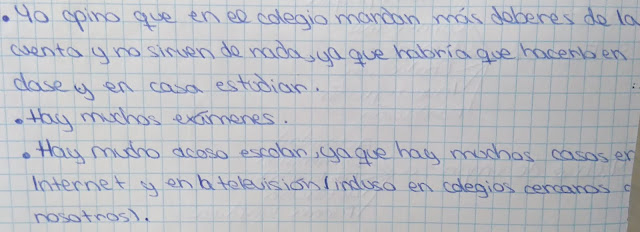 • Yo opino que en el colegio mandan más deberes de la
cuenta y no sirven de nada, ya que habría que hacerlo en
clase y en casa estudiar.
• Hay muchos exámenes.
• Hay mucho acoso escolar, ya que hay muchos casos en
Internet y en la televisión (incluso en colegios cercanos a
nosotros).